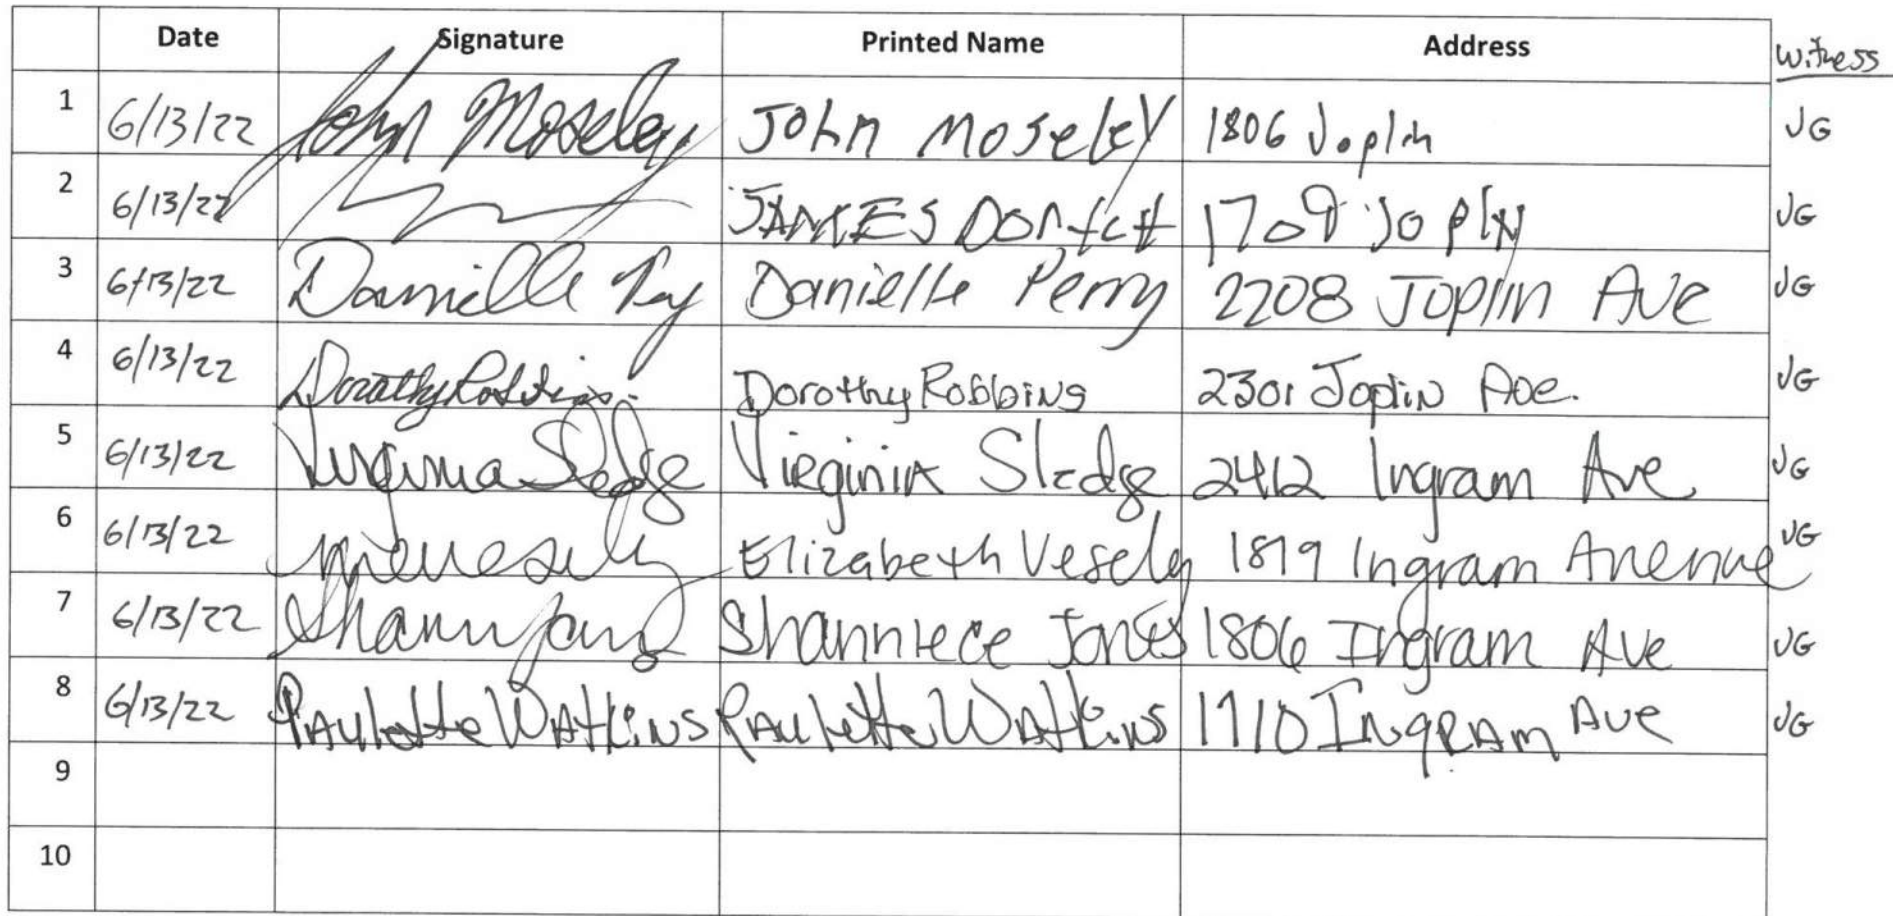 Date Signature Printed Name Address Witness
1 6/13/22 John Moseley John Moseley 1806 Joplin JG
2 6/13/22 JAMES 1709 Joplin JG
3 6/13/22 Danielle Danielle Perry 2208 Joplin Ave JG
4 6/13/22 Dorothy Robbins Dorothy Robbins 2301 Joplin Ave. JG
5 6/13/22 Virginia Sledge Virginia Sledge 2412 Ingram Ave JG
6 6/13/22 Elizabeth Vesely 1819 Ingram Avenue JG
7 6/13/22 Shanniece Jones 1806 Ingram Ave JG
8 6/13/22 Paulette Watkins Paulette Watkins 1710 Ingram Ave JG
9
10